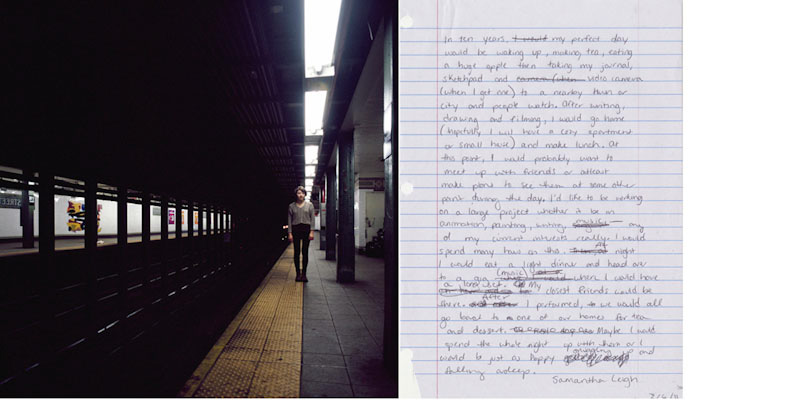 STREET
In ten years, I would my perfect day
would be waking up, making tea, eating
a huge apple then taking my journal,
sketchpad and camera (when video camera
(when I get one) to a nearby town or
city and people watch. After writing,
drawing and filming, I would go home
(hopefully I will have a cozy apartment
or small house) and make lunch. At
this point, I would probably want to
meet up with friends or atleast
make plans to see them at some other
point during the day. I'd like to be working
on a large project whether it be in
animation, painting, writing, any
of my current interests really. I would
spend many hours on this. At night
I would eat a light dinner and head over
to a gig (music) where I would have
a long set. My closest friends would be
there. After I performed, we would all
go back to one of our homes for tea
and dessert. Maybe I would
spend the whole night up with them or I
would be just as happy up and
falling asleep.
Samantha Leigh